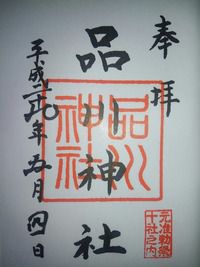 奉拝
品川神社
平成二 年五月四日
品川神社
元准勅祭
十社之内